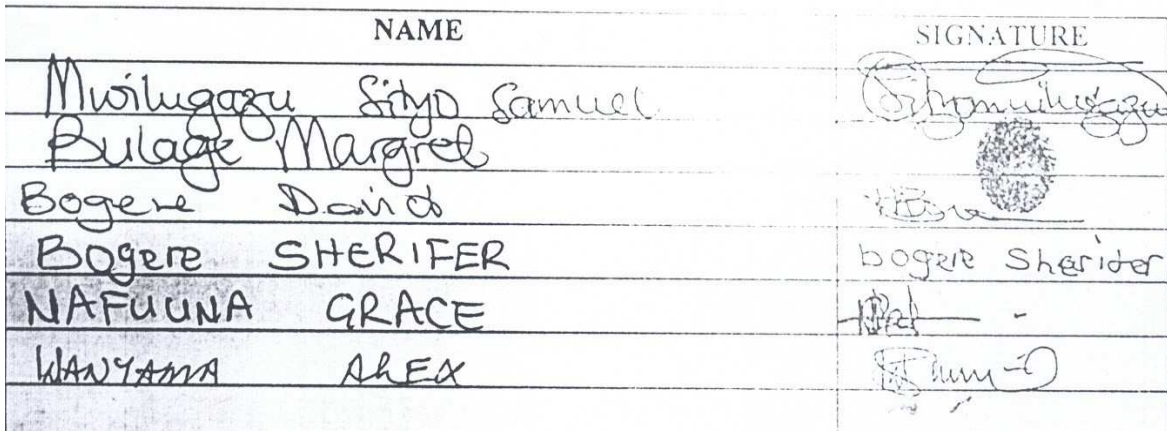 NAME SIGNATURE
Mwilugazu Sityo Samuel
Bulage Margret
Bogere David
Bogere SHERIFER
bogere Sherifer
NAFUUNA GRACE
WANYAMA ALEX